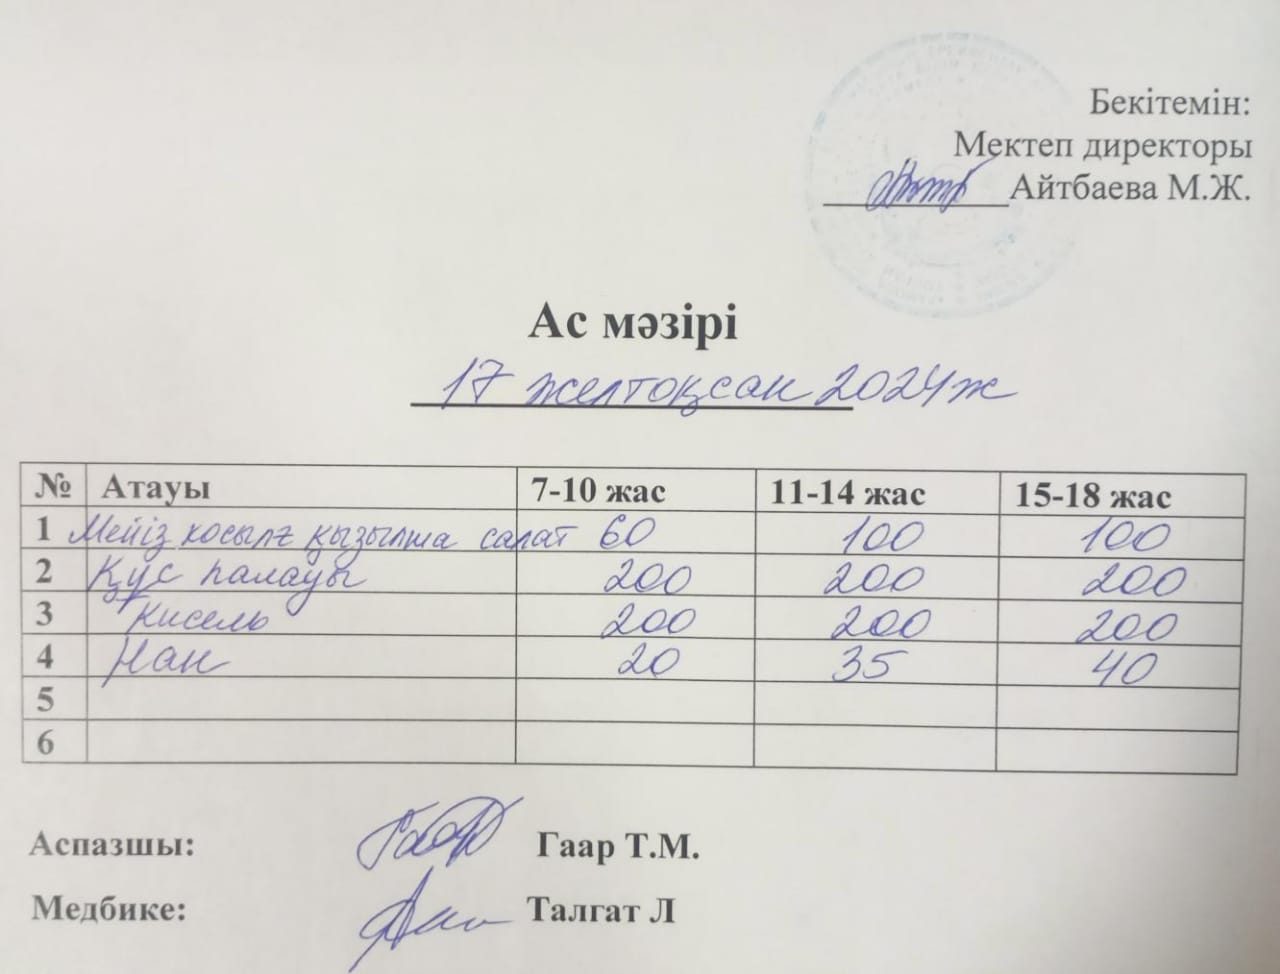 Бекітемін:
Мектеп директоры
Айтбаева М.Ж.
Ас мәзірі
17 желтоқсан 2024ж
№ Атауы 7-10 жас 11-14 жас 15-18 жас
1 Мейіз қосылғ қызылша салат 60 100 100
2 Құс палауы 200 200 200
3 Кисель 200 200 200
4 Нан 20 35 40
5
6
Аспазшы: Гаар Т.М.
Медбике: Талгат Л